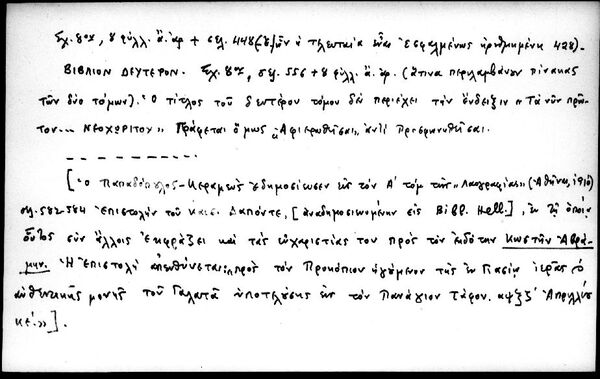 Σχ. 8ον, 8 φύλλ. ἄ. ἀρ + σελ. 448 (ὧν ἡ τελευταία εἶναι ἐσφαλμένως ἠριθμημένη 428).
ΒΙΒΛΙΟΝ ΔΕΥΤΕΡΟΝ. Σχ. 8ον, σελ. 556 + 8 φύλλ. ἄ. ἀρ. (ἅτινα περιλαμβάνουν πίνακας
τῶν δύο τόμων). Ὁ τίτλος τοῦ δευτέρου τόμου δὲν περιέχει τὴν ἔνδειξιν «Τὰ νῦν πρῶ-
τον... ΝΕΟΧΩΡΙΤΟΥ» Γράφεται ὅμως «Ἀφιερωθεῖσαι» ἀντὶ Προσφωνηθεῖσαι.
[Ὁ Παπαδόπουλος-Κεραμεὺς ἐδημοσίευσεν εἰς τὸν Α' τόμ. τῆς «Λαογραφίας» (Ἀθῆναι, 1910)
σελ. 582-584 ἐπιστολὴν τοῦ Καισ. Δαπόντε, [ἀναδημοσιευομένην εἰς Bibl. Hell.], ἐν τῇ ὁποίᾳ
οὗτος σὺν ἄλλοις ἐκφράζει καὶ τὰς εὐχαριστίας του πρὸς τὸν ἐκδότην Κωστῆν Ἀβρά-
μην. Ἡ ἐπιστολὴ ἀπευθύνεται: «πρὸς τὸν Προκόπιον ἡγούμενον τῆς ἐν Γιασίῳ ἱερᾶς
αὐθεντικῆς μονῆς τοῦ Γαλατᾶ ὑποτελούσης εἰς τὸν Πανάγιον Τάφον. αψξζ' Ἀπριλλίου
κε'.»].